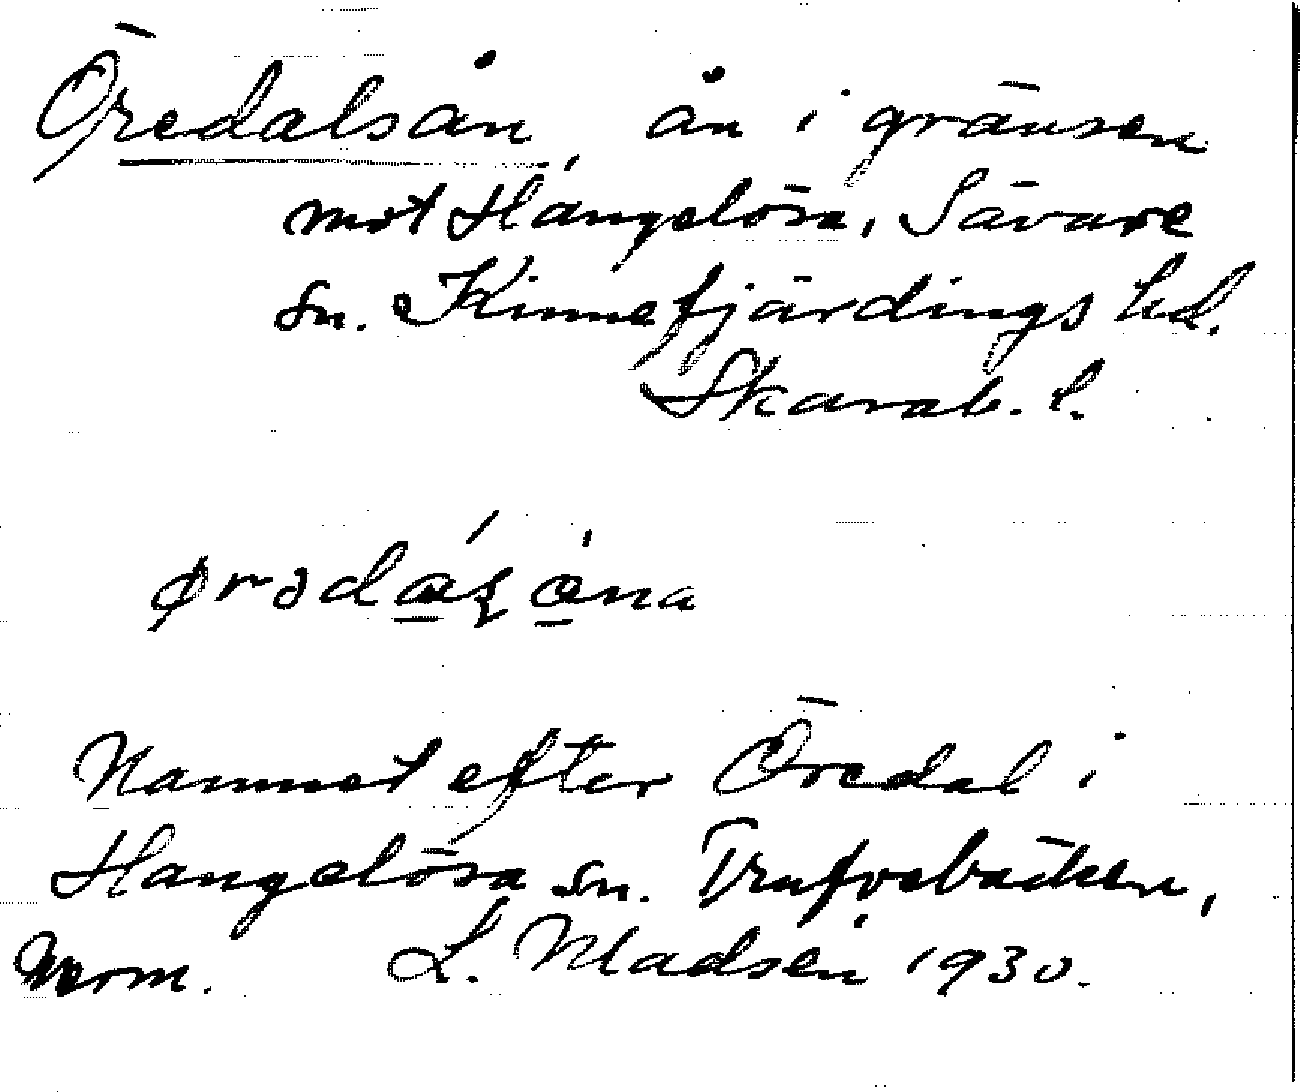 Öredalsån, ån i gränsen
mot Hangelösa, Sävare
sn. Kinnefjärdings hd.
Skarab. l.
Namnet efter Öredal i
Hangelösa sn. Trufvebäcken,
norm. L. Madsén 1930.